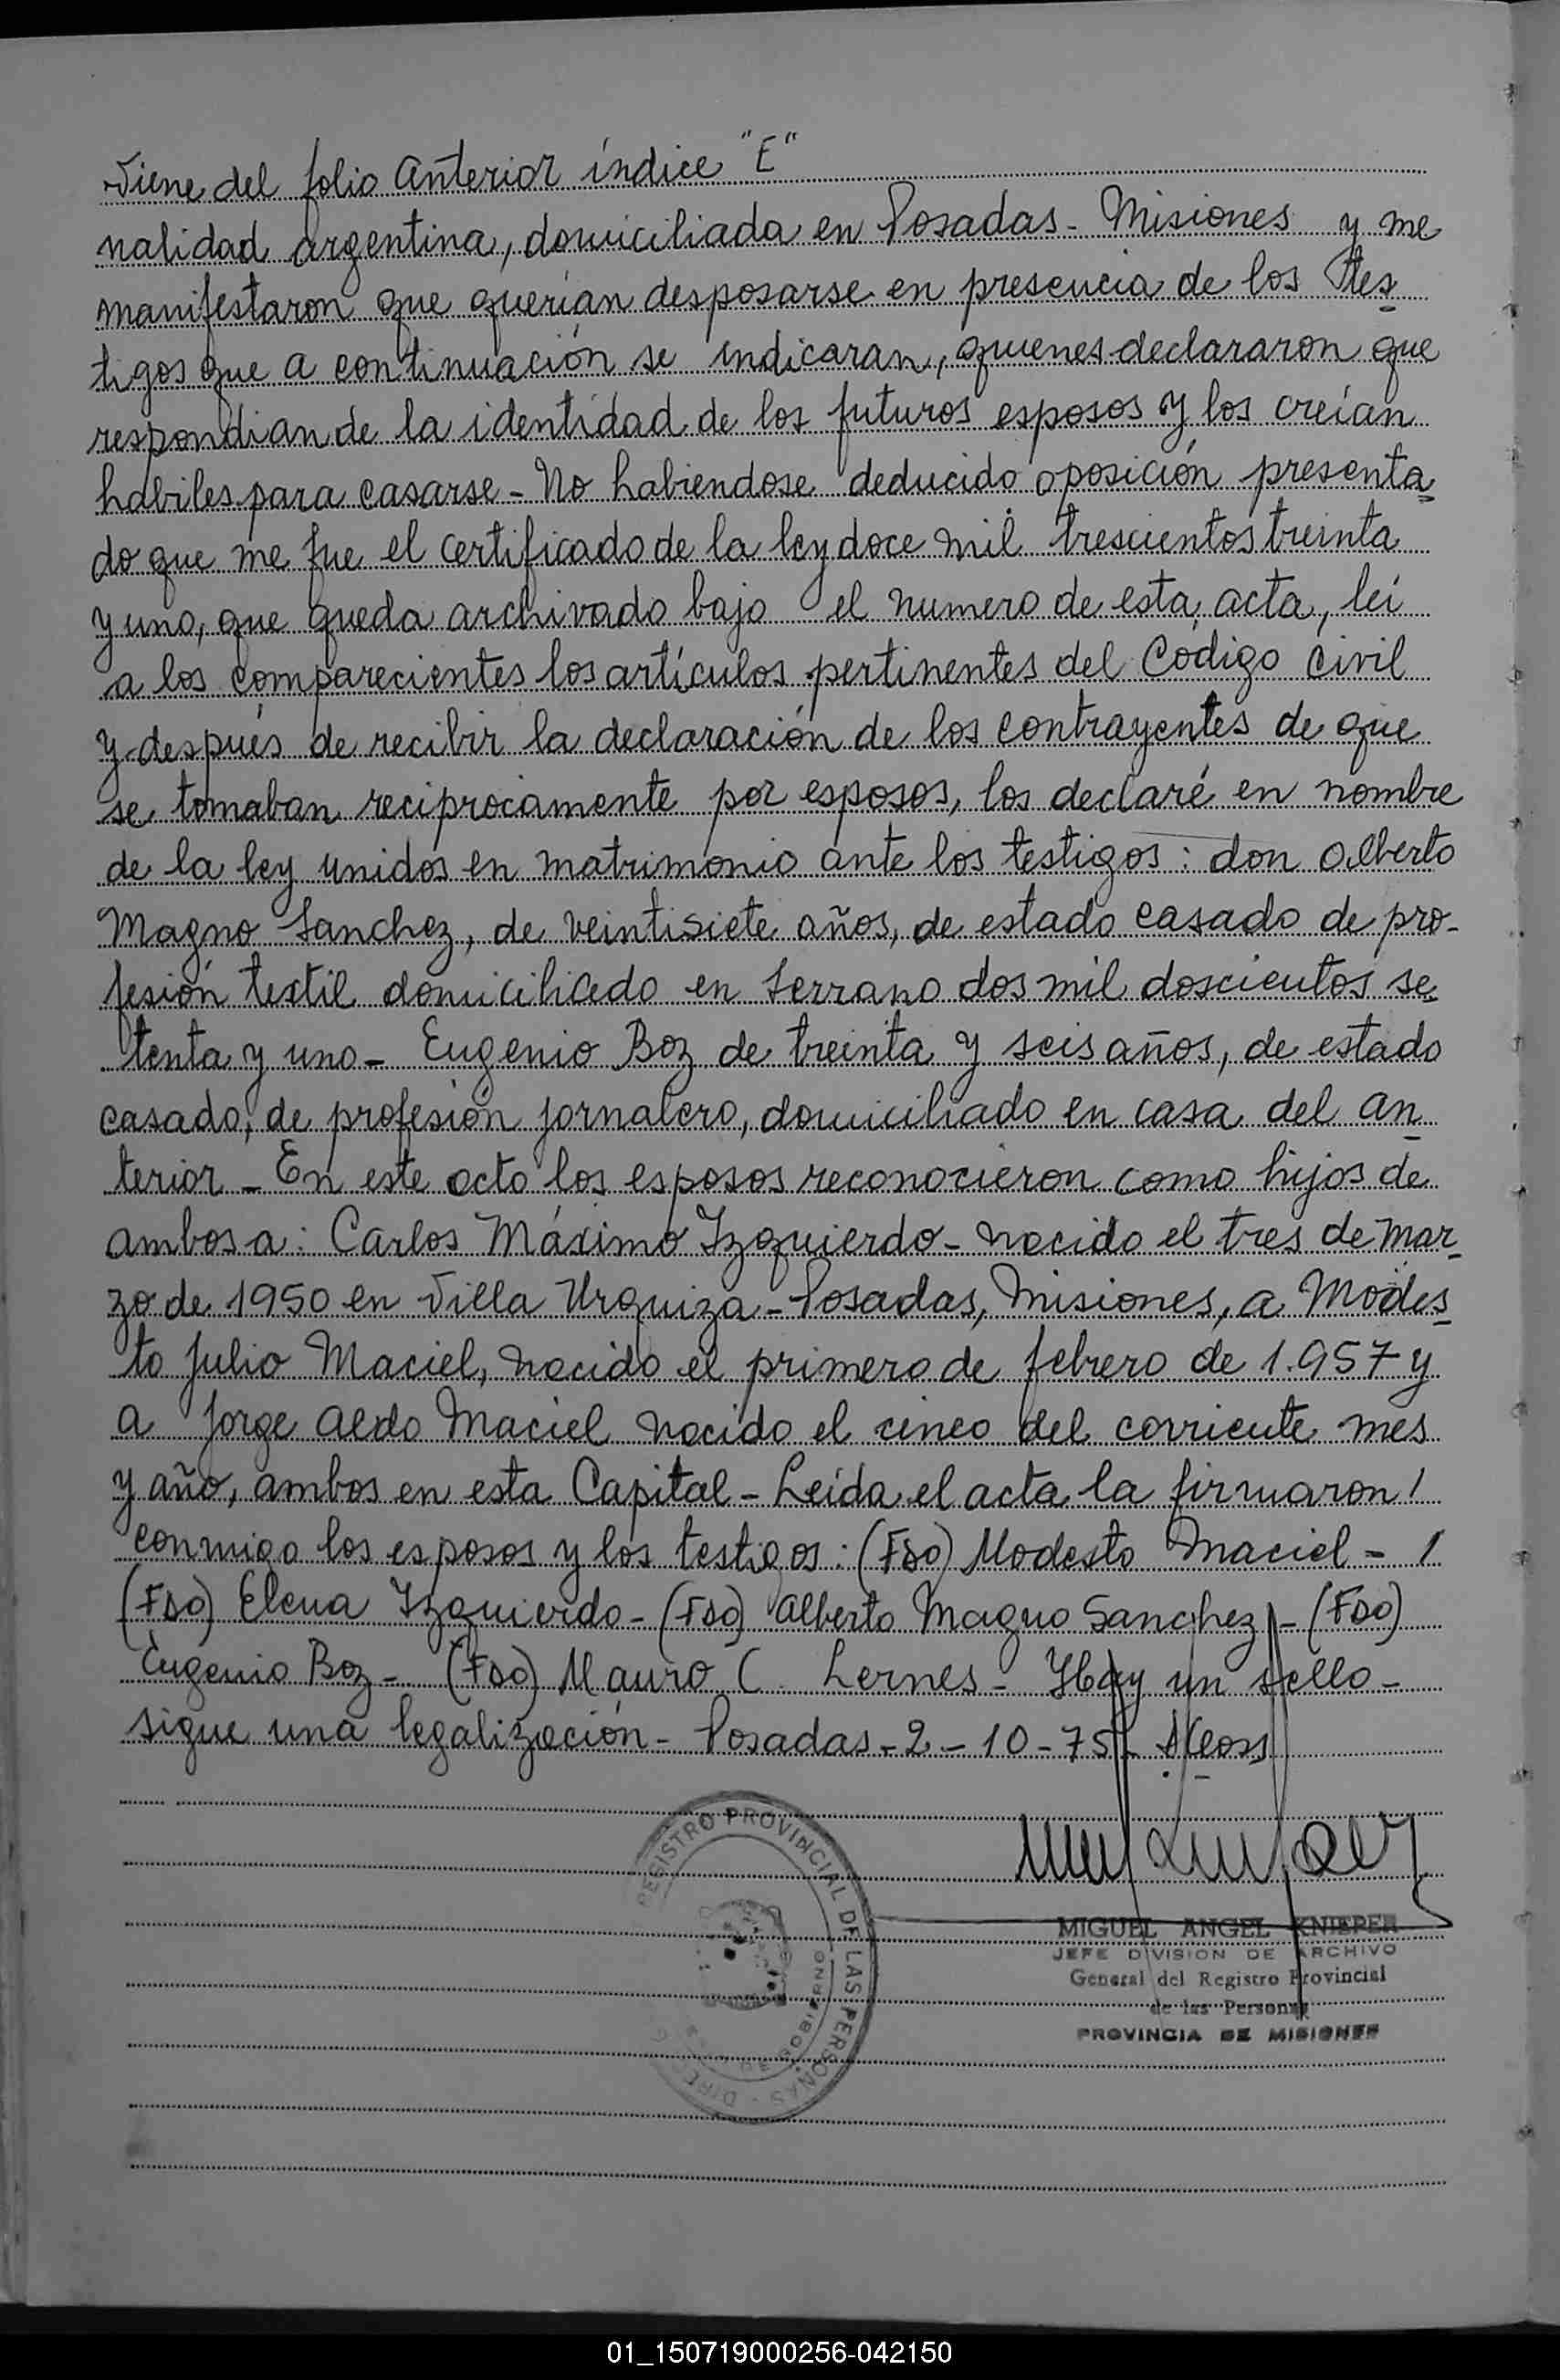 Viene del folio anterior índice "E"
nalidad argentina, domiciliada en Posadas - Misiones y me
manifestaron que querían desposarse en presencia de los tes
tigos que a continuación se indicaran, quienes declararon que
respondian de la identidad de los futuros esposos y los creían
habiles para casarse - No habiendose deducido oposición presenta
do que me fue el certificado de la ley doce mil trescientos treinta
y uno, que queda archivado bajo el numero de esta acta, leí
a los comparecientes los artículos pertinentes del Codigo civil
y después de recibir la declaración de los contrayentes de que
se tomaban reciprocamente por esposos, los declaré en nombre
de la ley unidos en matrimonio ante los testigos: don Alberto
Magno Sanchez, de veintisiete años, de estado casado de pro-
fesión textil domiciliado en Serrano dos mil doscientos se
tenta y uno - Eugenio Boz de treinta y seis años, de estado
casado, de profesión jornalero, domiciliado en casa del an
terior - En este acto los esposos reconocieron como hijos de
ambos a: Carlos Máximo Izquierdo - nacido el tres de Mar
zo de 1950 en Villa Urquiza - Posadas, Misiones, a Modes
to Julio Maciel, nacido el primero de febrero de 1.957 y
a Jorge Aldo Maciel nacido el cinco del corriente mes
y año, ambos en esta Capital - Leída el acta la firmaron /
conmigo los esposos y los testigos: (Fdo) Modesto Maciel - /
(Fdo) Elena Izquierdo - (Fdo) Alberto Magno Sanchez - (Fdo)
Eugenio Boz - (Fdo) Mauro C. Lernes - Hay un sello -
sigue una legalización - Posadas - 2 - 10 - 75 -
REGISTRO PROVINCIAL DE LAS PERSONAS
MIGUEL ANGEL KNIEPER
JEFE DIVISION DE ARCHIVO
General del Registro Provincial
de las Personas
PROVINCIA DE MISIONES
01_150719000256-042150